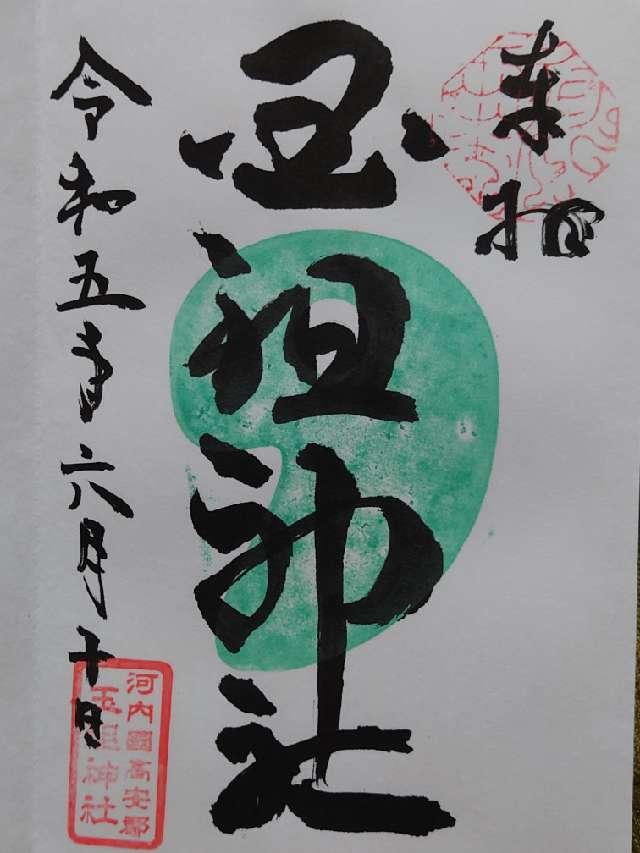 奉拝
玉祖神社
令和五年六月十日
河内國高安郡
玉祖神社